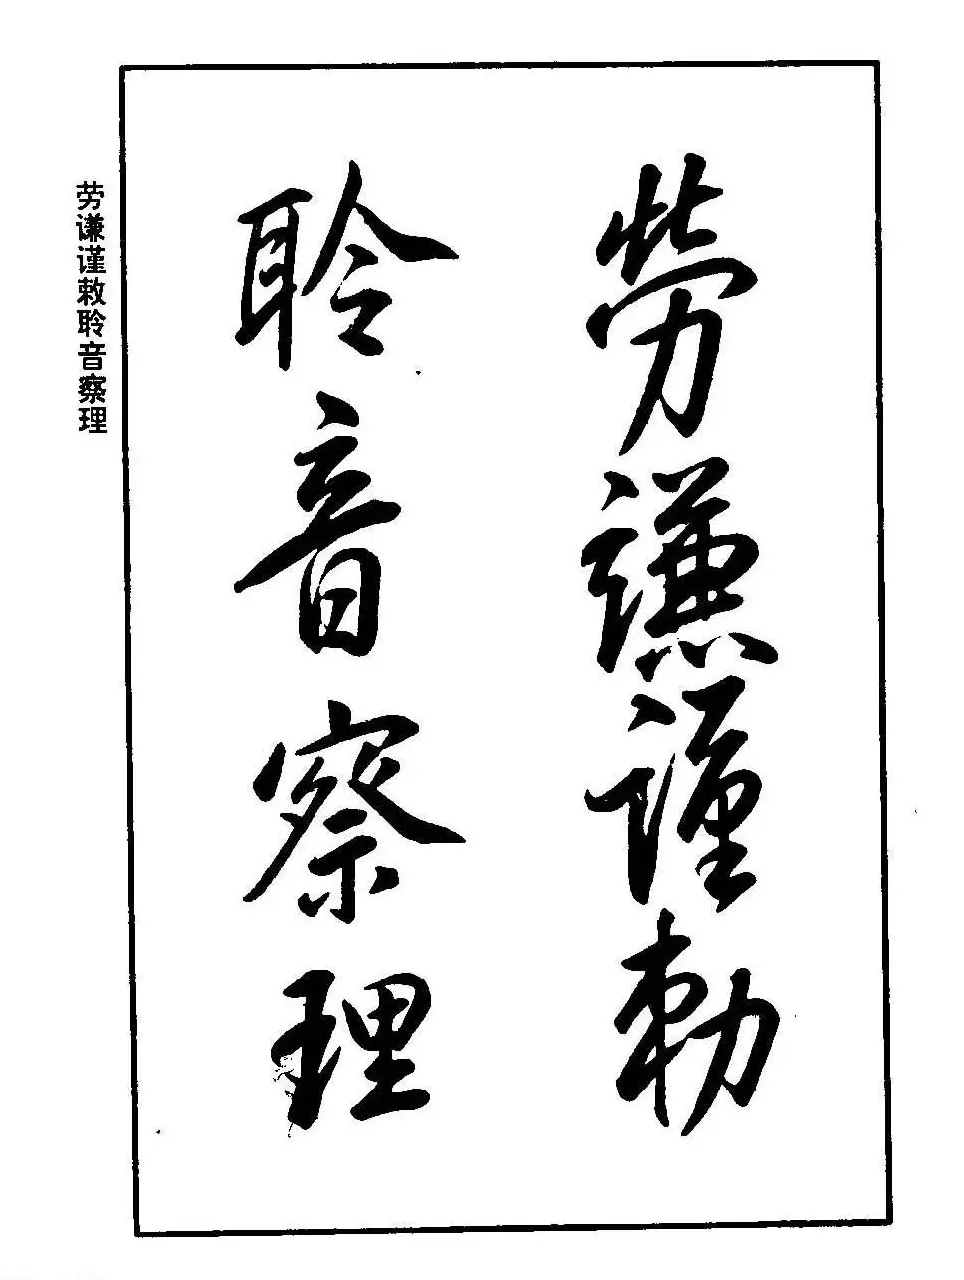 勞謙謹勅
聆音察理
劳谦谨敕聆音察理